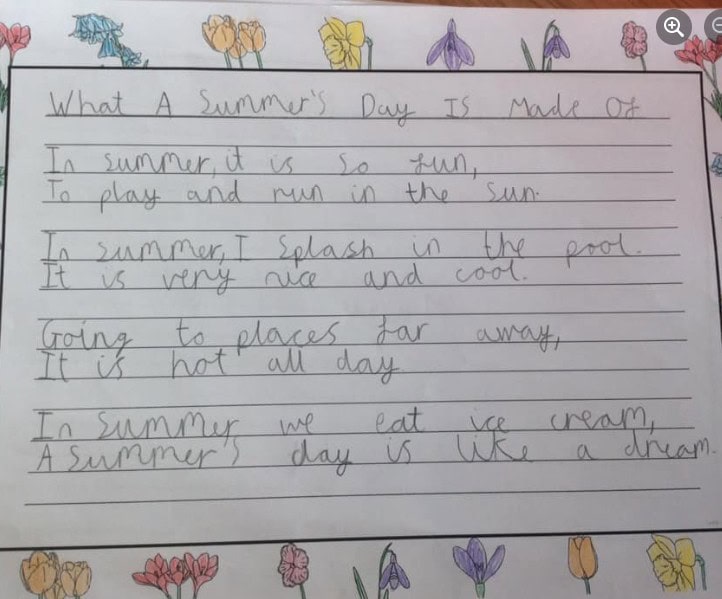 What A Summer's Day Is Made Of
In summer, it is so fun,
To play and run in the sun.
In summer, I splash in the pool.
It is very nice and cool.
Going to places far away,
It is hot all day
In summer we eat ice cream,
A summer's day is like a dream.